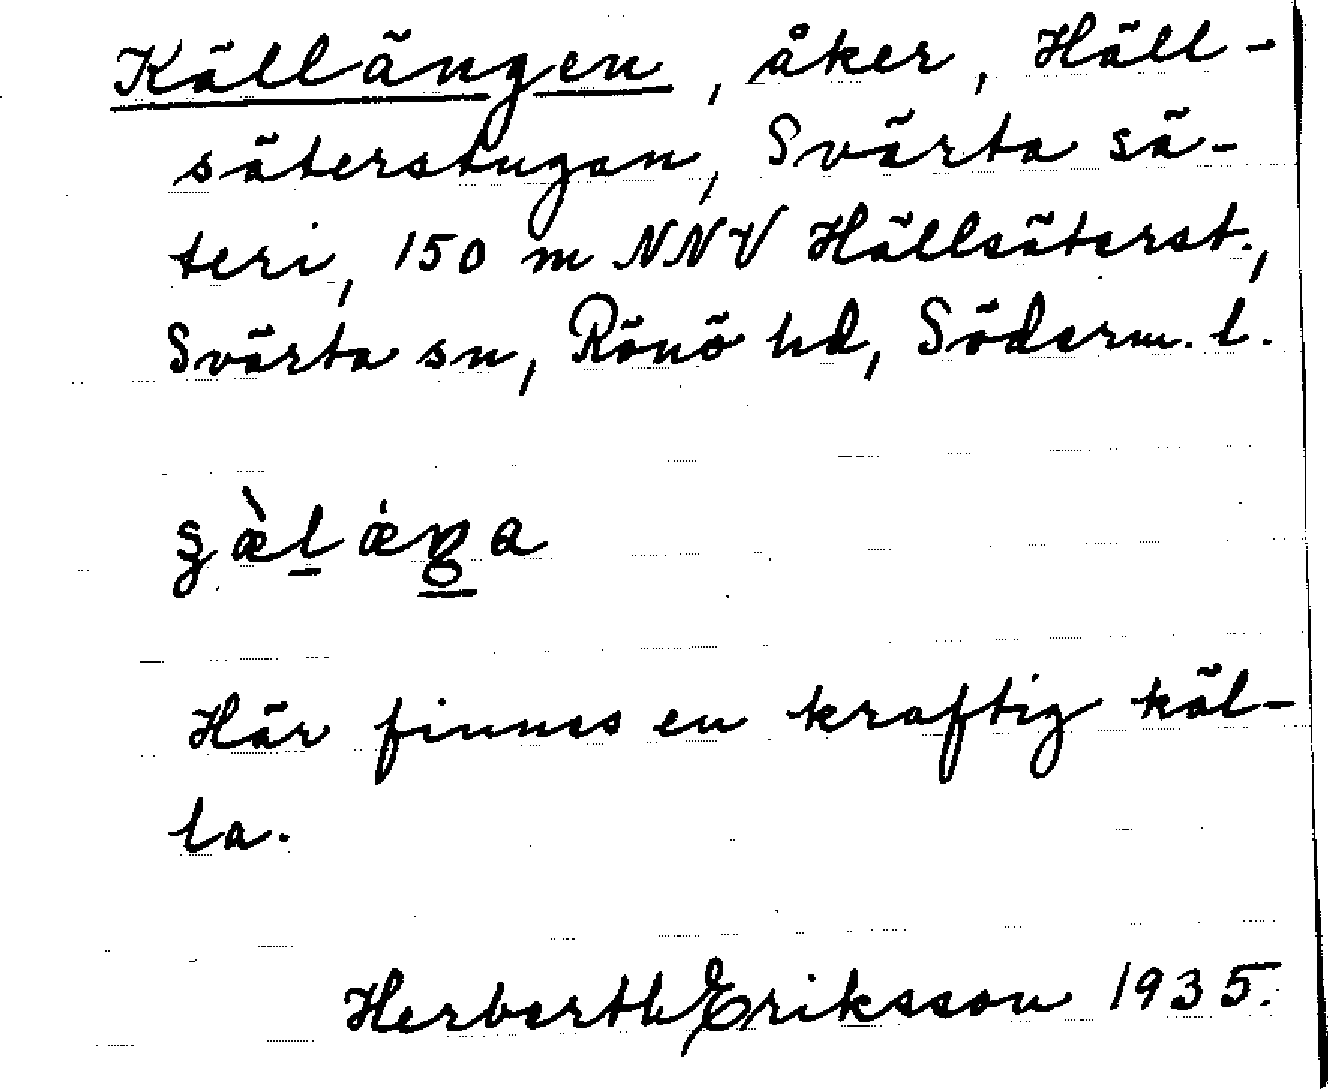 Källängen, åker, Häll-
säterstugan, Svärta sä-
teri, 150 m NNV Hällsäterst.,
Svärta sn, Rönö hd, Söderm. l.
Här finnes en kraftig käl-
la.
Herbert Eriksson 1935.